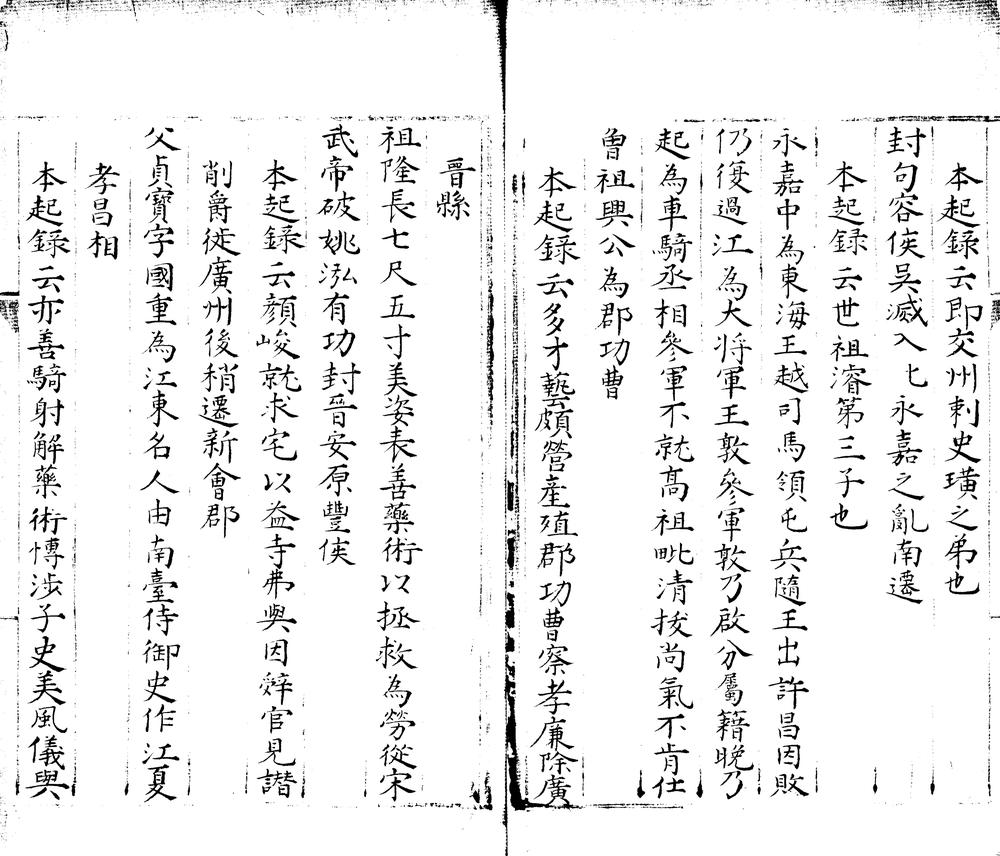 本起錄云即交州刺史璜之弟也
封句容侯吳滅入七永嘉之亂南遷
本起錄云世祖濬第三子也
永嘉中為東海王越司馬領屯兵隨王出許昌因敗
仍復過江為大將軍王敦參軍敦乃啟分屬籍晚乃
起為車騎丞相參軍不就高祖毗清拔尚氣不肯仕
曾祖興公為郡功曹
本起錄云多才藝頗營產殖郡功曹察孝廉除廣
晉縣
祖隆長七尺五寸美姿表善藥術以拯救為勞從宋
武帝破姚泓有功封晉安原豐侯
本起錄云顏峻就求宅以益寺弗與因辭官見譖
削爵徙廣州後稍遷新會郡
父貞寶字國重為江東名人由南臺侍御史作江夏
孝昌相
本起錄云亦善騎射解藥術博涉子史美風儀與